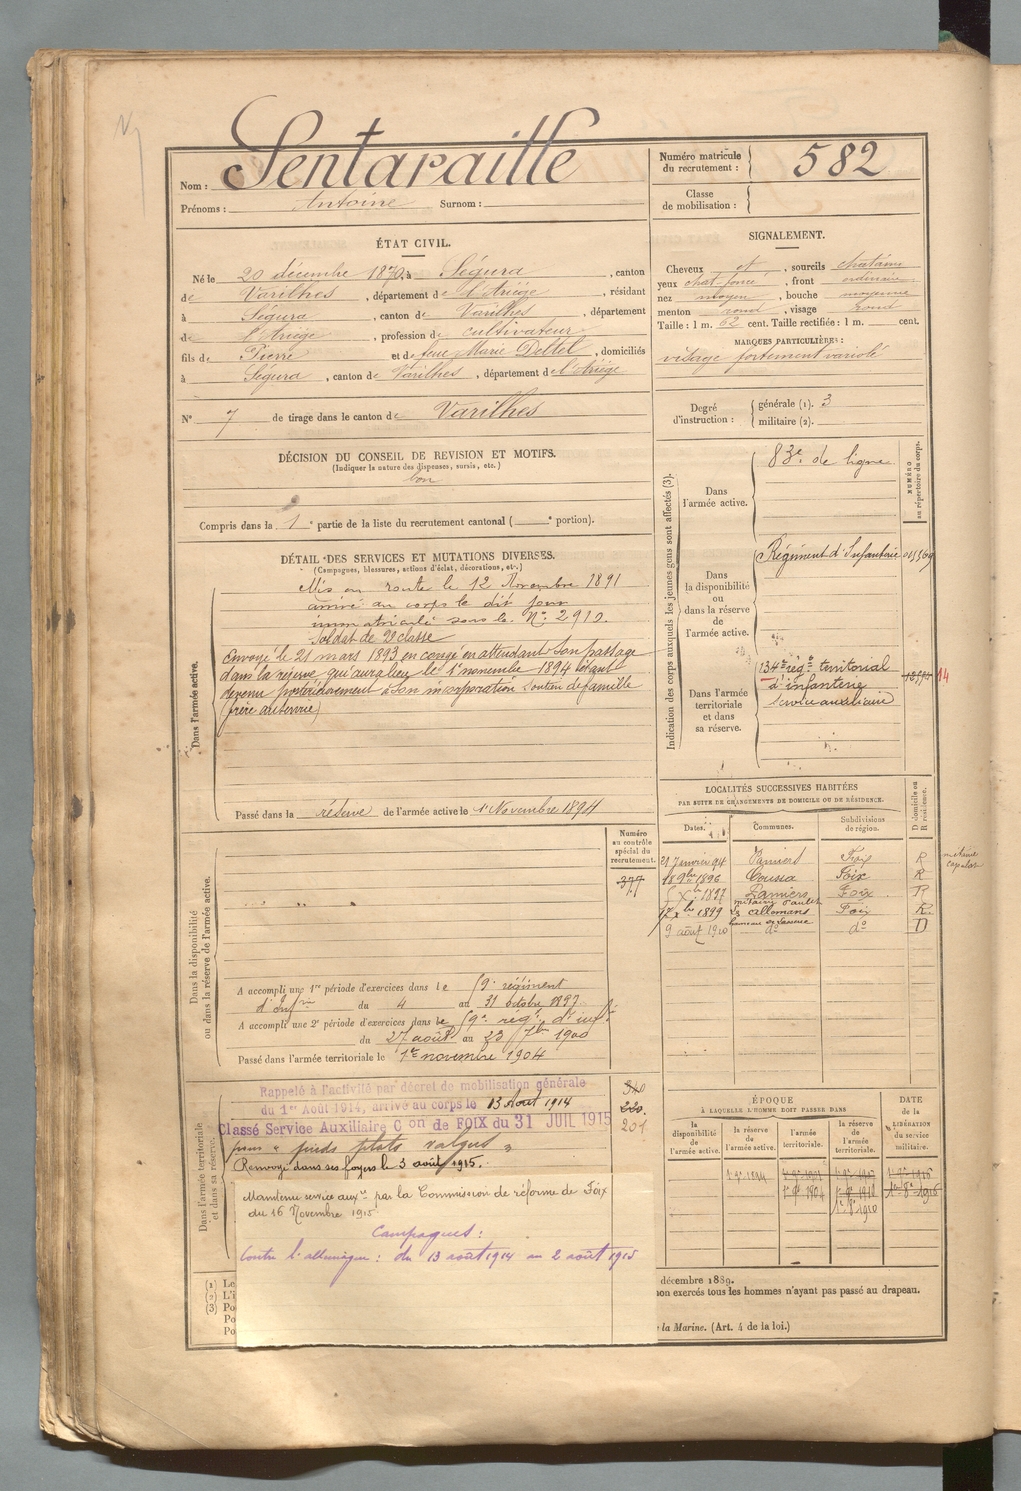 Nom : Sentaraille
Numéro matricule du recrutement : 582
Prénoms : Antoine Surnom :
Classe de mobilisation :
ÉTAT CIVIL.
Né le 20 décembre 1870, à Ségura, canton
de Varilhes, département de l'Ariège, résidant
à Ségura, canton de Varilhes, département
de l'Ariège, profession de cultivateur
fils de Pierre et de feue Marie Deltel, domiciliés
à Ségura, canton de Varilhes, département de l'Ariège
N° 7 de tirage dans le canton de Varilhes
SIGNALEMENT.
Cheveux et, sourcils châtains
yeux chat. foncé, front ordinaire
nez moyen, bouche moyenne
menton rond, visage rond
Taille : 1 m. 62 cent. Taille rectifiée : 1 m. cent.
MARQUES PARTICULIÈRES :
visage fortement variolé
Degré d'instruction : générale (1). 3
militaire (2).
DÉCISION DU CONSEIL DE REVISION ET MOTIFS.
(Indiquer la nature des dispenses, sursis, etc.)
bon
Compris dans la 1e partie de la liste du recrutement cantonal ( e portion).
DÉTAIL DES SERVICES ET MUTATIONS DIVERSES.
(Campagnes, blessures, actions d'éclat, décorations, etc.)
Dans l'armée active.
Mis en route le 12 Novembre 1891
arrivé au corps le dit jour
immatriculé sous le N° 2910.
Soldat de 2e classe
Envoyé le 21 mars 1893 en congé en attendant son passage
dans la réserve qui aura lieu le 1er novembre 1894 étant
devenu postérieurement à son incorporation soutien de famille
Passé dans la réserve de l'armée active le 1er Novembre 1894
Indication des corps auxquels les jeunes gens sont affectés (3).
NUMÉRO au répertoire du corps.
Dans l'armée active.
83e de ligne
Dans la disponibilité ou dans la réserve de l'armée active.
Régiment d'Infanterie
Dans l'armée territoriale et dans sa réserve.
134e rég.t territorial
d'infanterie
service auxiliaire
14
LOCALITÉS SUCCESSIVES HABITÉES
PAR SUITE DE CHANGEMENTS DE DOMICILE OU DE RÉSIDENCE.
Dates. Communes. Subdivisions de région. D domicile ou R résidence.
21 Janvier 94 Pamiers Foix R
18 9bre 1896 Coussa Foix R
5 Xbre 1897 Pamiers Foix R
17 Xbre 1899 Les Allemans Foix R.
9 août 1910 do do D
Dans la disponibilité ou dans la réserve de l'armée active.
Numéro au contrôle spécial du recrutement.
377
A accompli une 1re période d'exercices dans le 59e régiment
d'Infrie du 4 au 31 octobre 1897
A accompli une 2e période d'exercices dans le 59e rég.t d'inf.
du 27 août au 23 7bre 1900
Passé dans l'armée territoriale le 1er novembre 1904
Dans l'armée territoriale et dans sa réserve.
Rappelé à l'activité par décret de mobilisation générale
du 1er Août 1914, arrivé au corps le 13 Août 1914
Classé Service Auxiliaire Con de FOIX du 31 JUIL 1915
pour " pieds plats valgus "
Renvoyé dans ses foyers le 3 août 1915.
201
Maintenu service auxre par la Commission de réforme de Foix
du 16 Novembre 1915
Campagnes :
Contre l'Allemagne : du 13 août 1914 au 2 août 1915
ÉPOQUE
À LAQUELLE L'HOMME DOIT PASSER DANS
la disponibilité de l'armée active.
la réserve de l'armée active.
l'armée territoriale.
la réserve de l'armée territoriale.
DATE de la LIBÉRATION du service militaire.
(1) Le
(2) L'i
(3) Po
Po
Po
décembre 1889.
non exercés tous les hommes n'ayant pas passé au drapeau.
la Marine. (Art. 4 de la loi.)